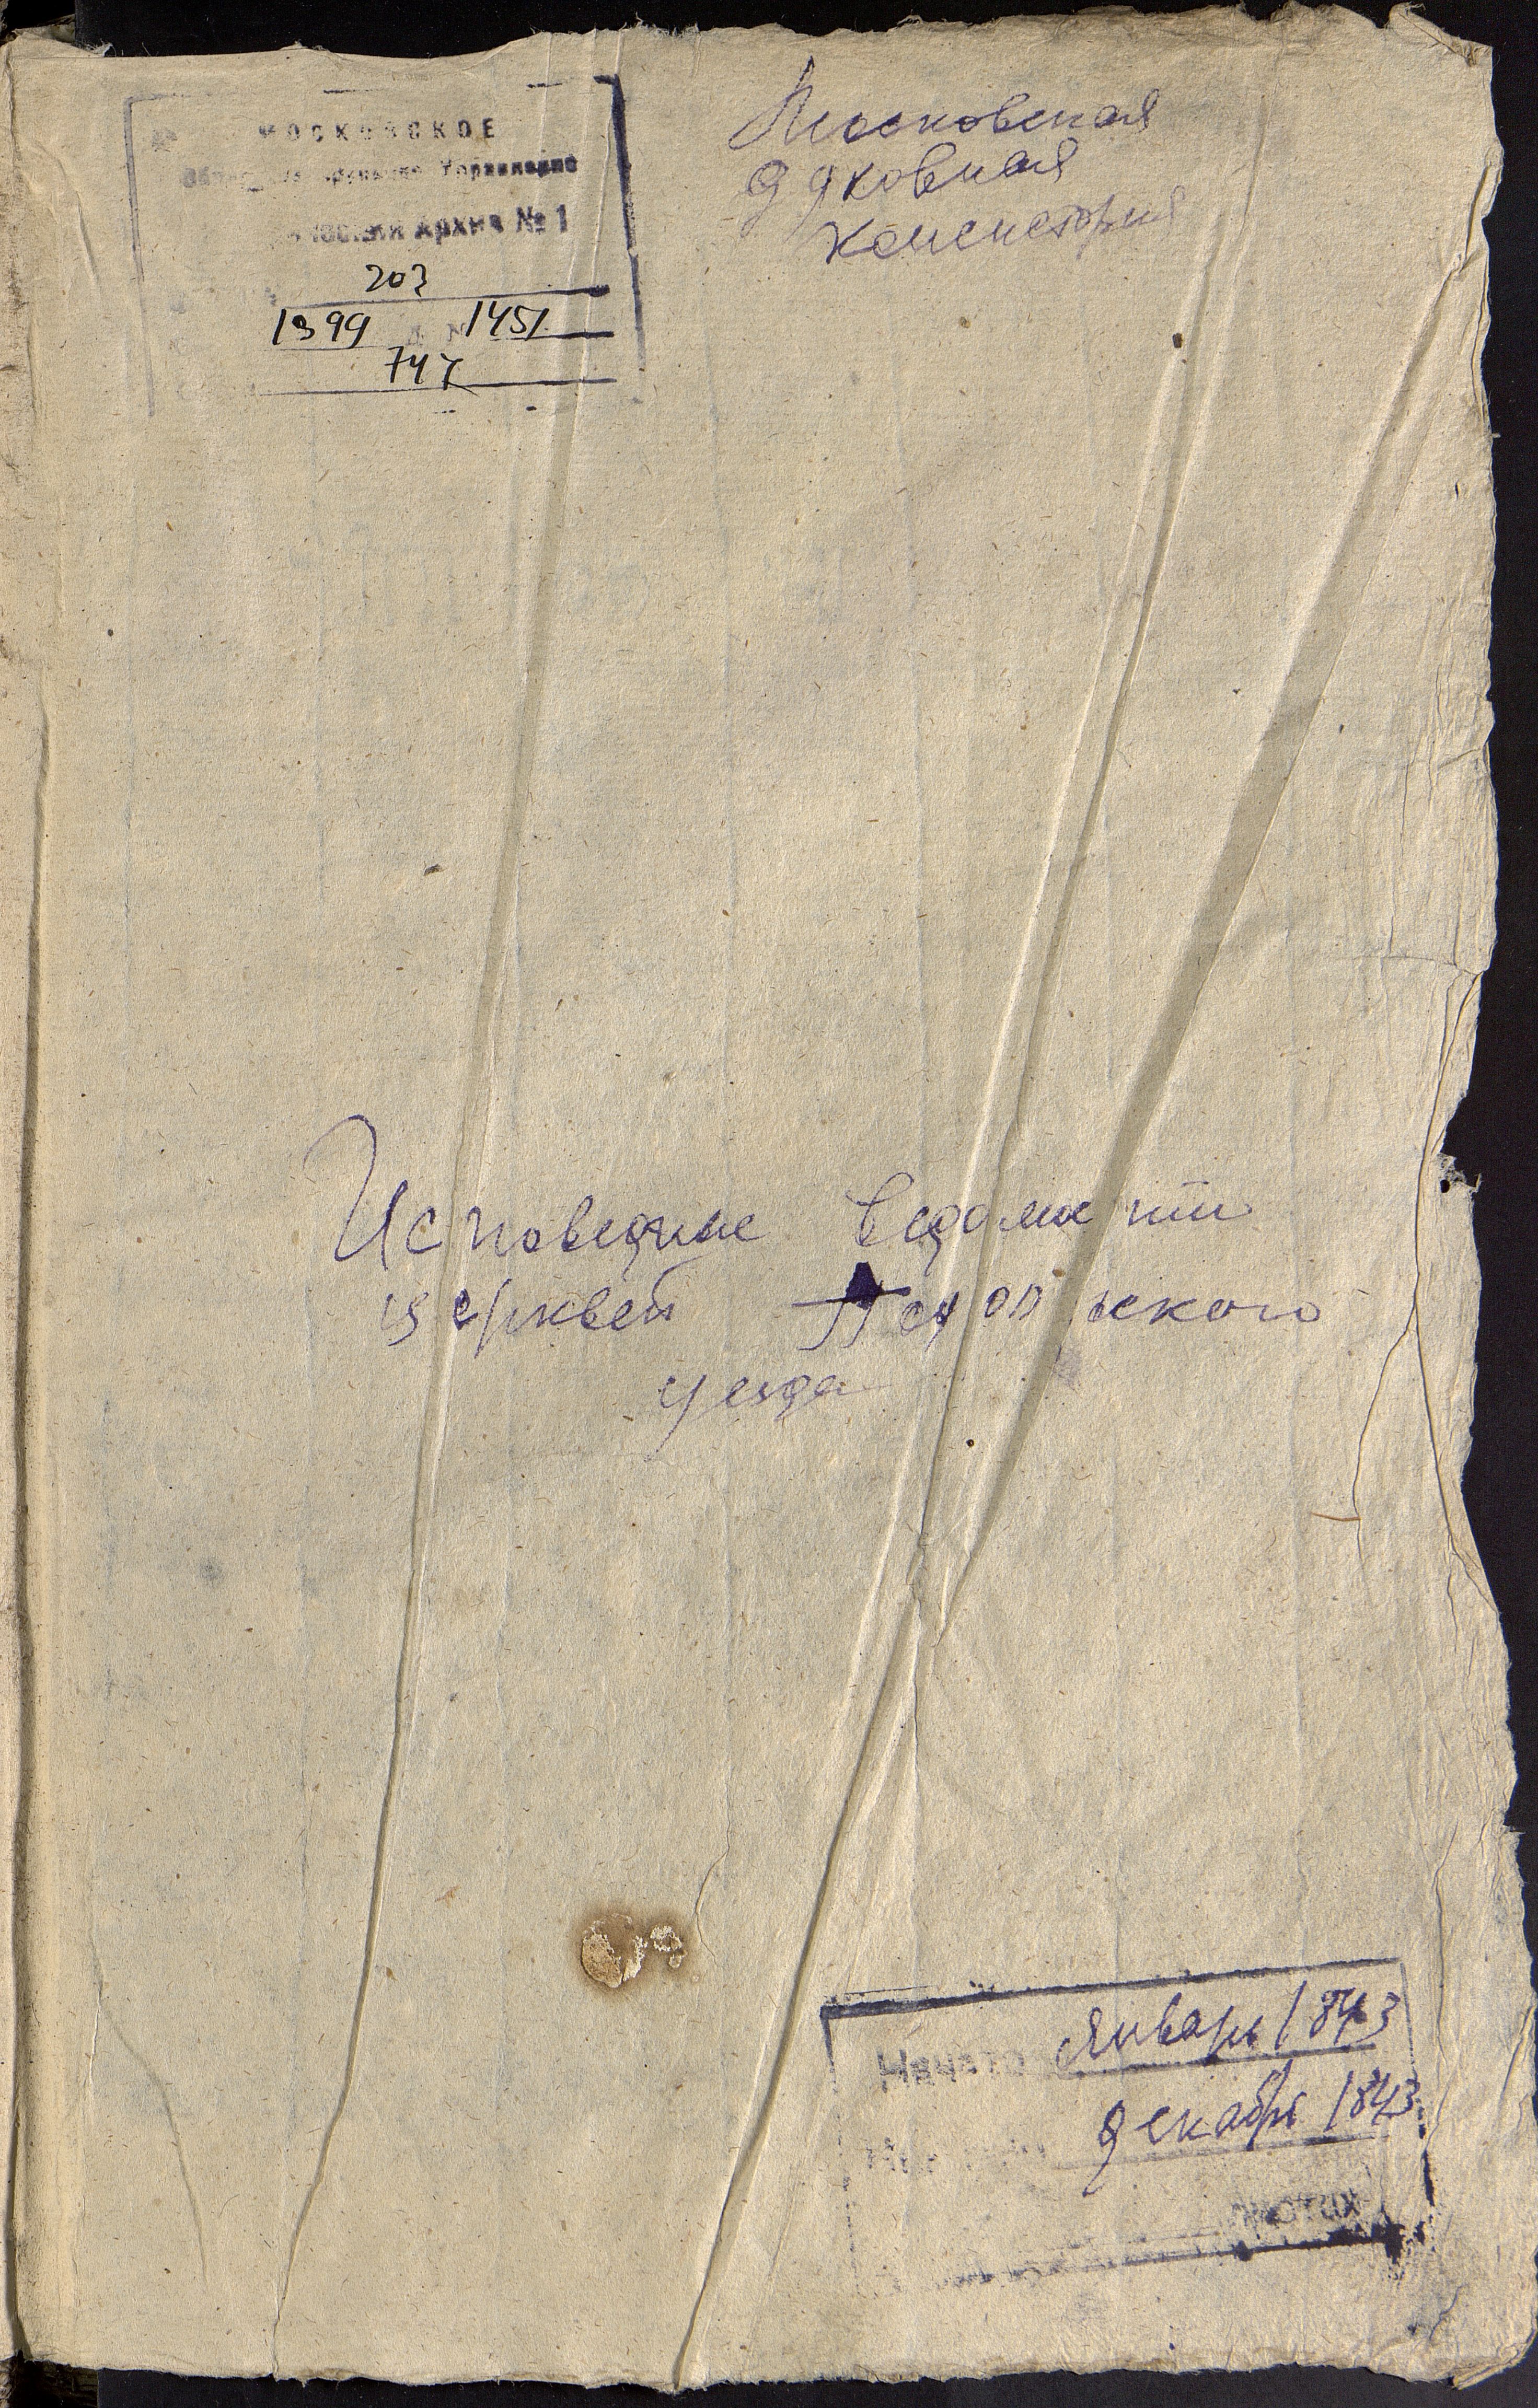 МОСКОВСКОЕ
Архив № 1
203
1399 1451
747
Московская
духовная
консистория
Исповедные ведомости
церквей Подольского
уезда
Начато январь 1843
декабрь 1843
листах